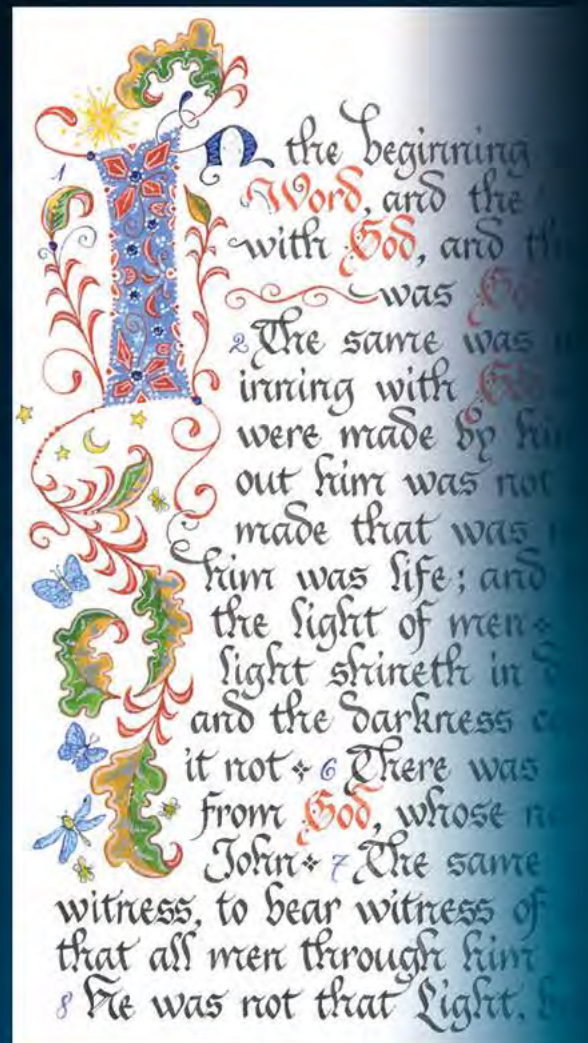 1 In the beginning
Word, and the
with God, and the
was God
2 The same was
inning with God
were made by him
out him was not
made that was
him was life; and
the light of men
light shineth in
and the darkness
it not 6 There was
from God, whose
John 7 The same
witness, to bear witness of
that all men through him
8 He was not that Light,